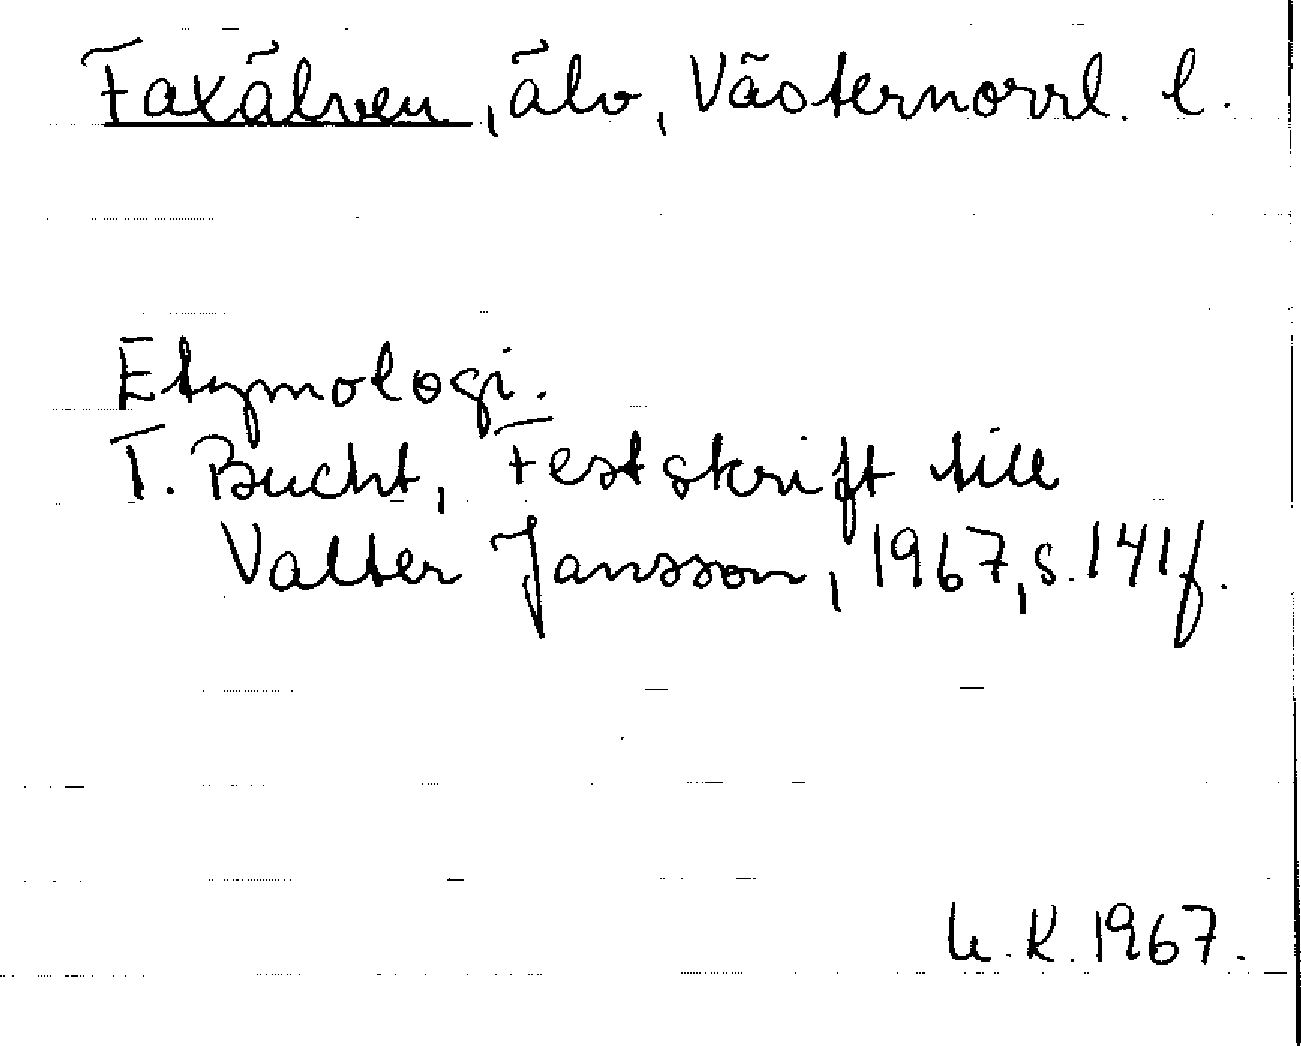 Faxälven, älv, Västernorrl. l.
Etymologi.
T. Bucht, Festskrift till
Valter Jansson, 1967, s. 141 f.
U. K. 1967.